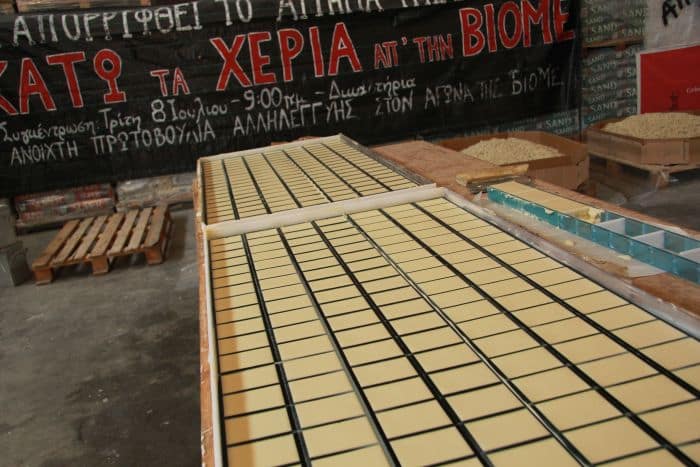 ΑΠΟΡΡΙΦΘΕΙ ΤΟ ΑΙΤΗΜΑ ΤΗΣ
ΚΑΤΩ ΤΑ ΧΕΡΙΑ ΑΠ' ΤΗΝ ΒΙΟΜΕ
Συγκέντρωση: Τρίτη 8 Ιουλίου - 9:00πμ - Δικαστήρια
ΑΝΟΙΧΤΗ ΠΡΩΤΟΒΟΥΛΙΑ ΑΛΛΗΛΕΓΓΥΗΣ ΣΤΟΝ ΑΓΩΝΑ ΤΗΣ ΒΙΟΜΕ